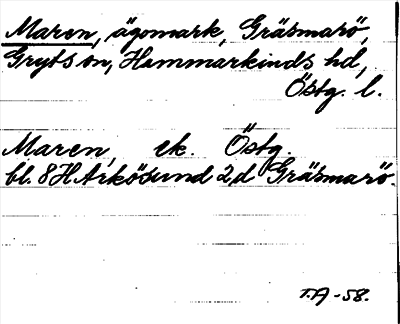 Maren, ägomark, Gräsmarö,
Gryts sn, Hammarkinds hd,
Östg. l.
Maren, ek. Östg.
bl. 8H Arkösund 2,d Gräsmarö.
T.A -58.